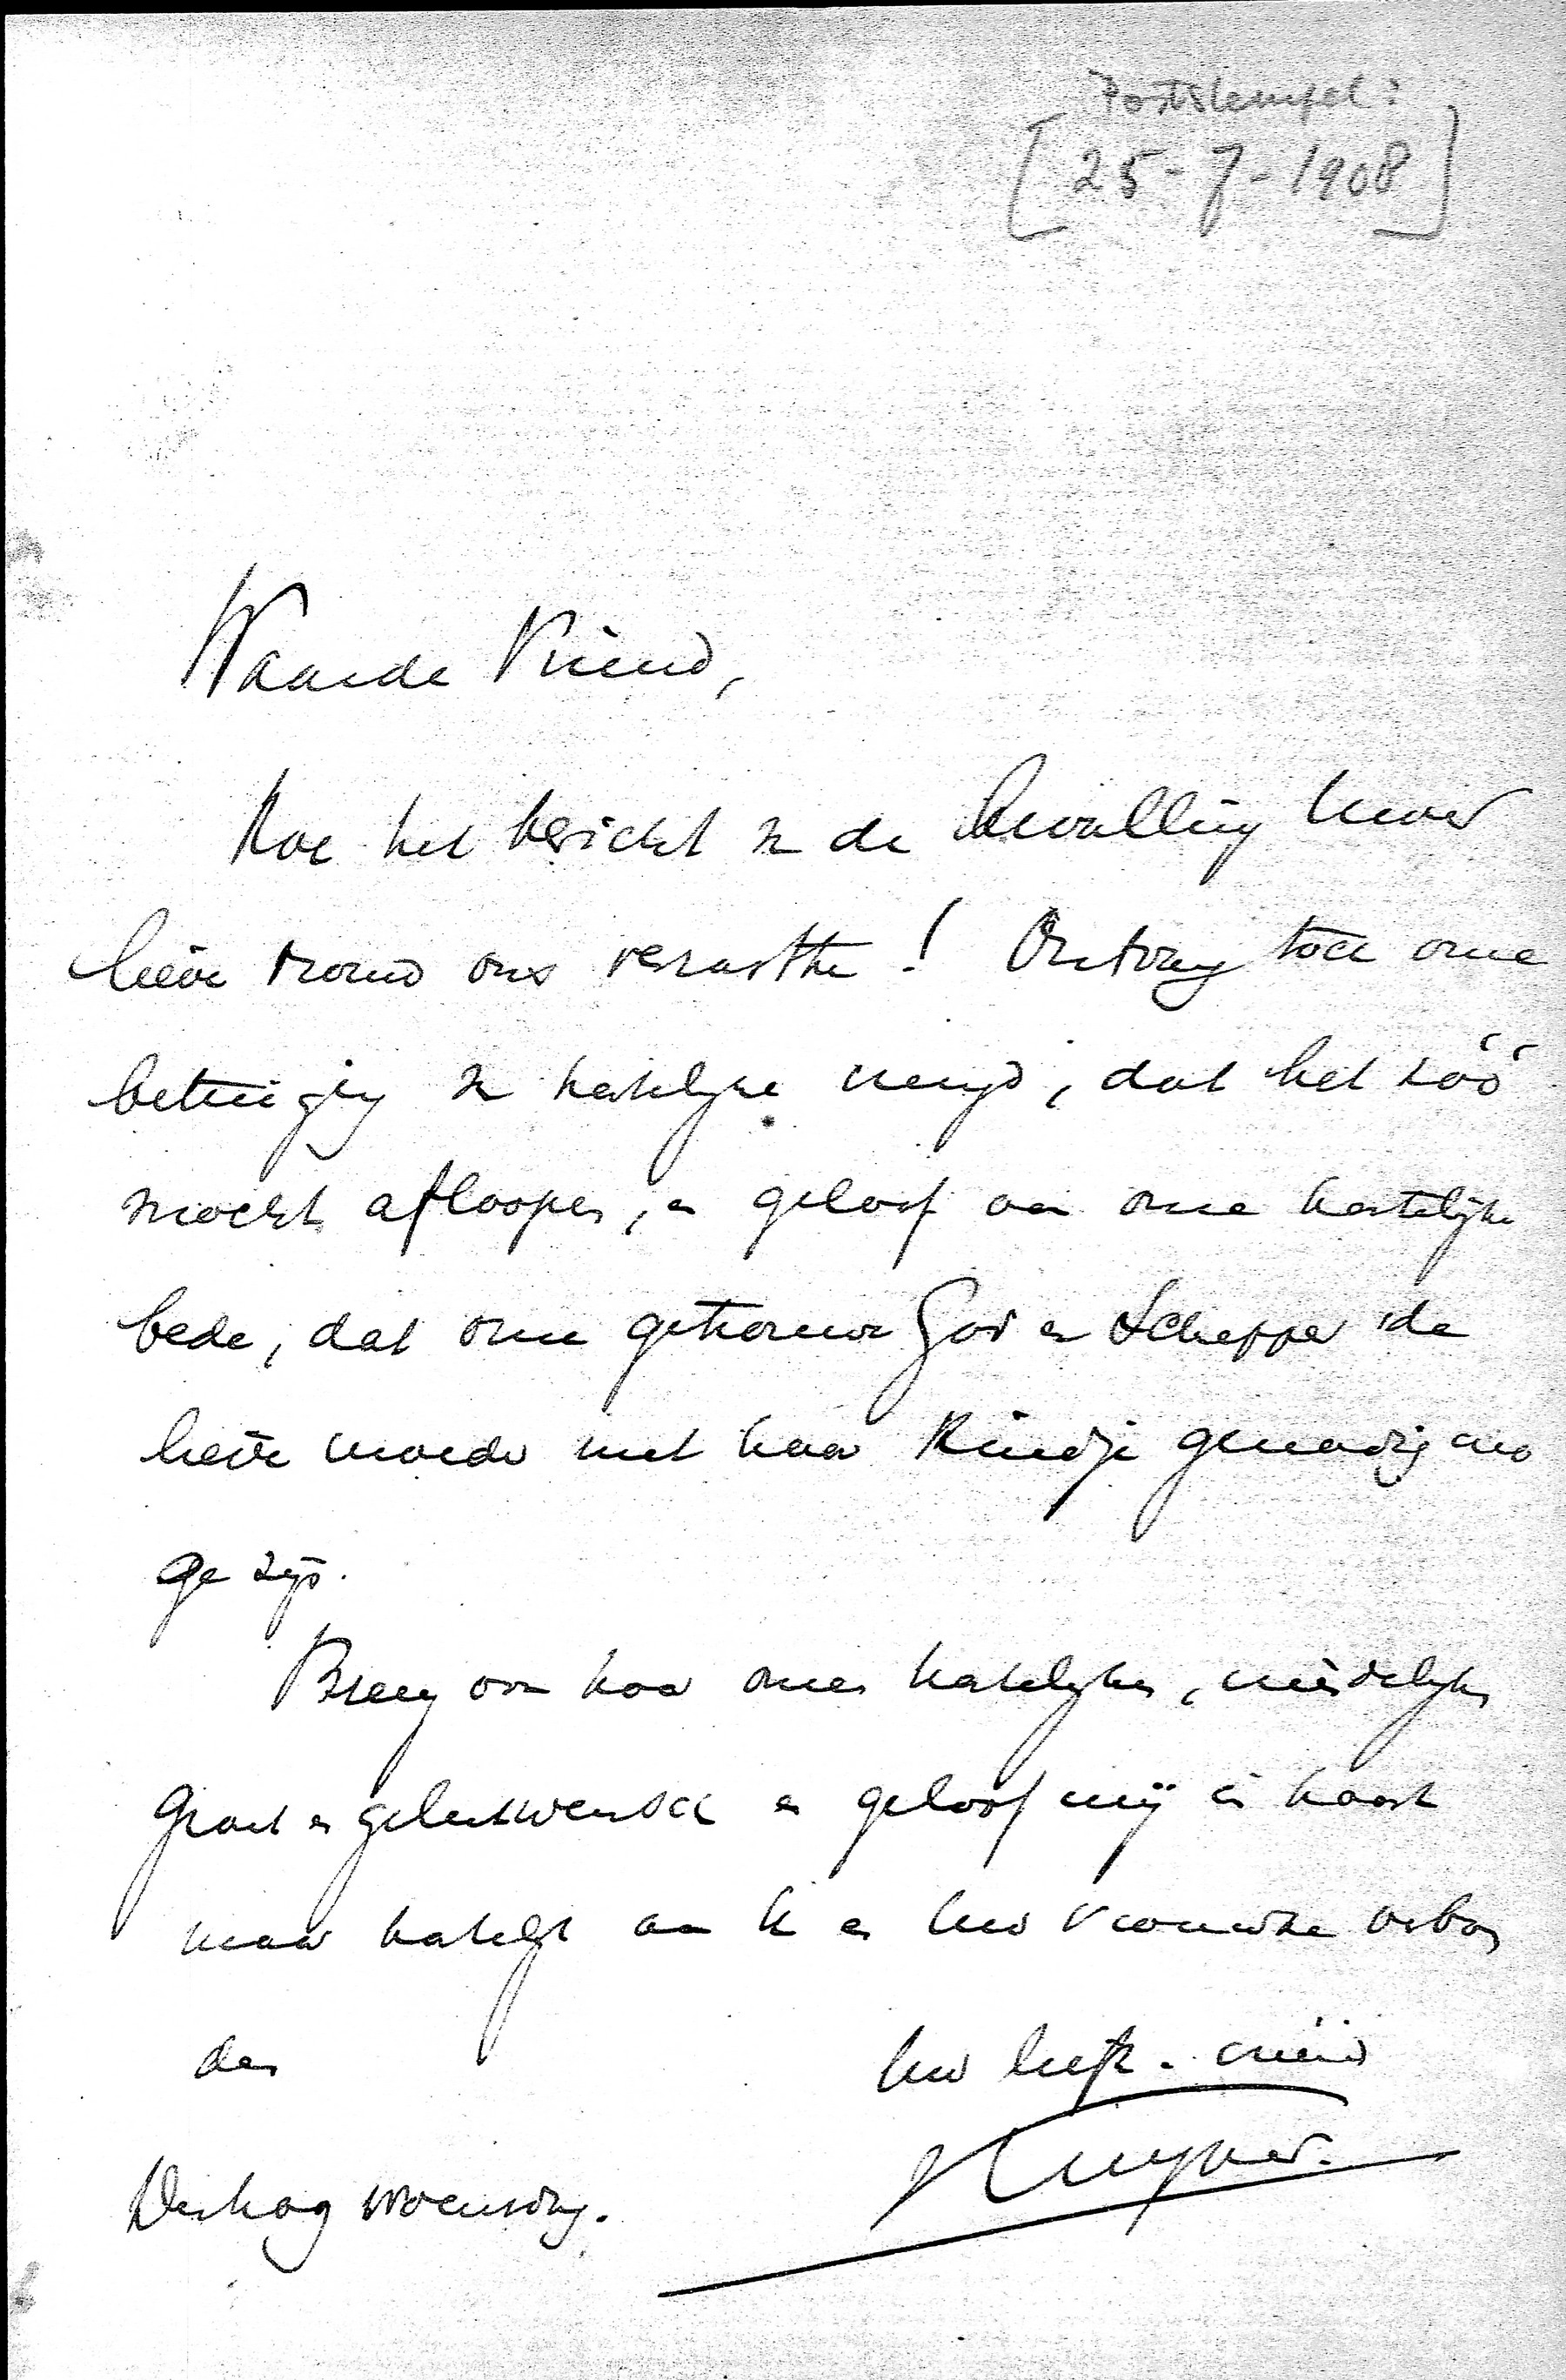 Poststempel:
[25-7-1908]
Waarde Vriend,
Hoe het bericht v de bevalling Uwer
lieve vrouw ons verraste! Ontvang toch onze
betuiging v hartelijke vreugd, dat het zóó
mocht afloopen, en geloof aan onze hartelijke
bede, dat onze getrouwe God en Schepper de
lieve moeder met haar kindje genadig mo
ge zijn.
Breng ook haar onze hartelijke, vriendelijke
groet en gelukwensch en geloof mij in haast
maar hartelijk aan U en Uw vrouwke verbon
den
Uw liefh. vriend
Kuyper.
Den Haag Woensdag.